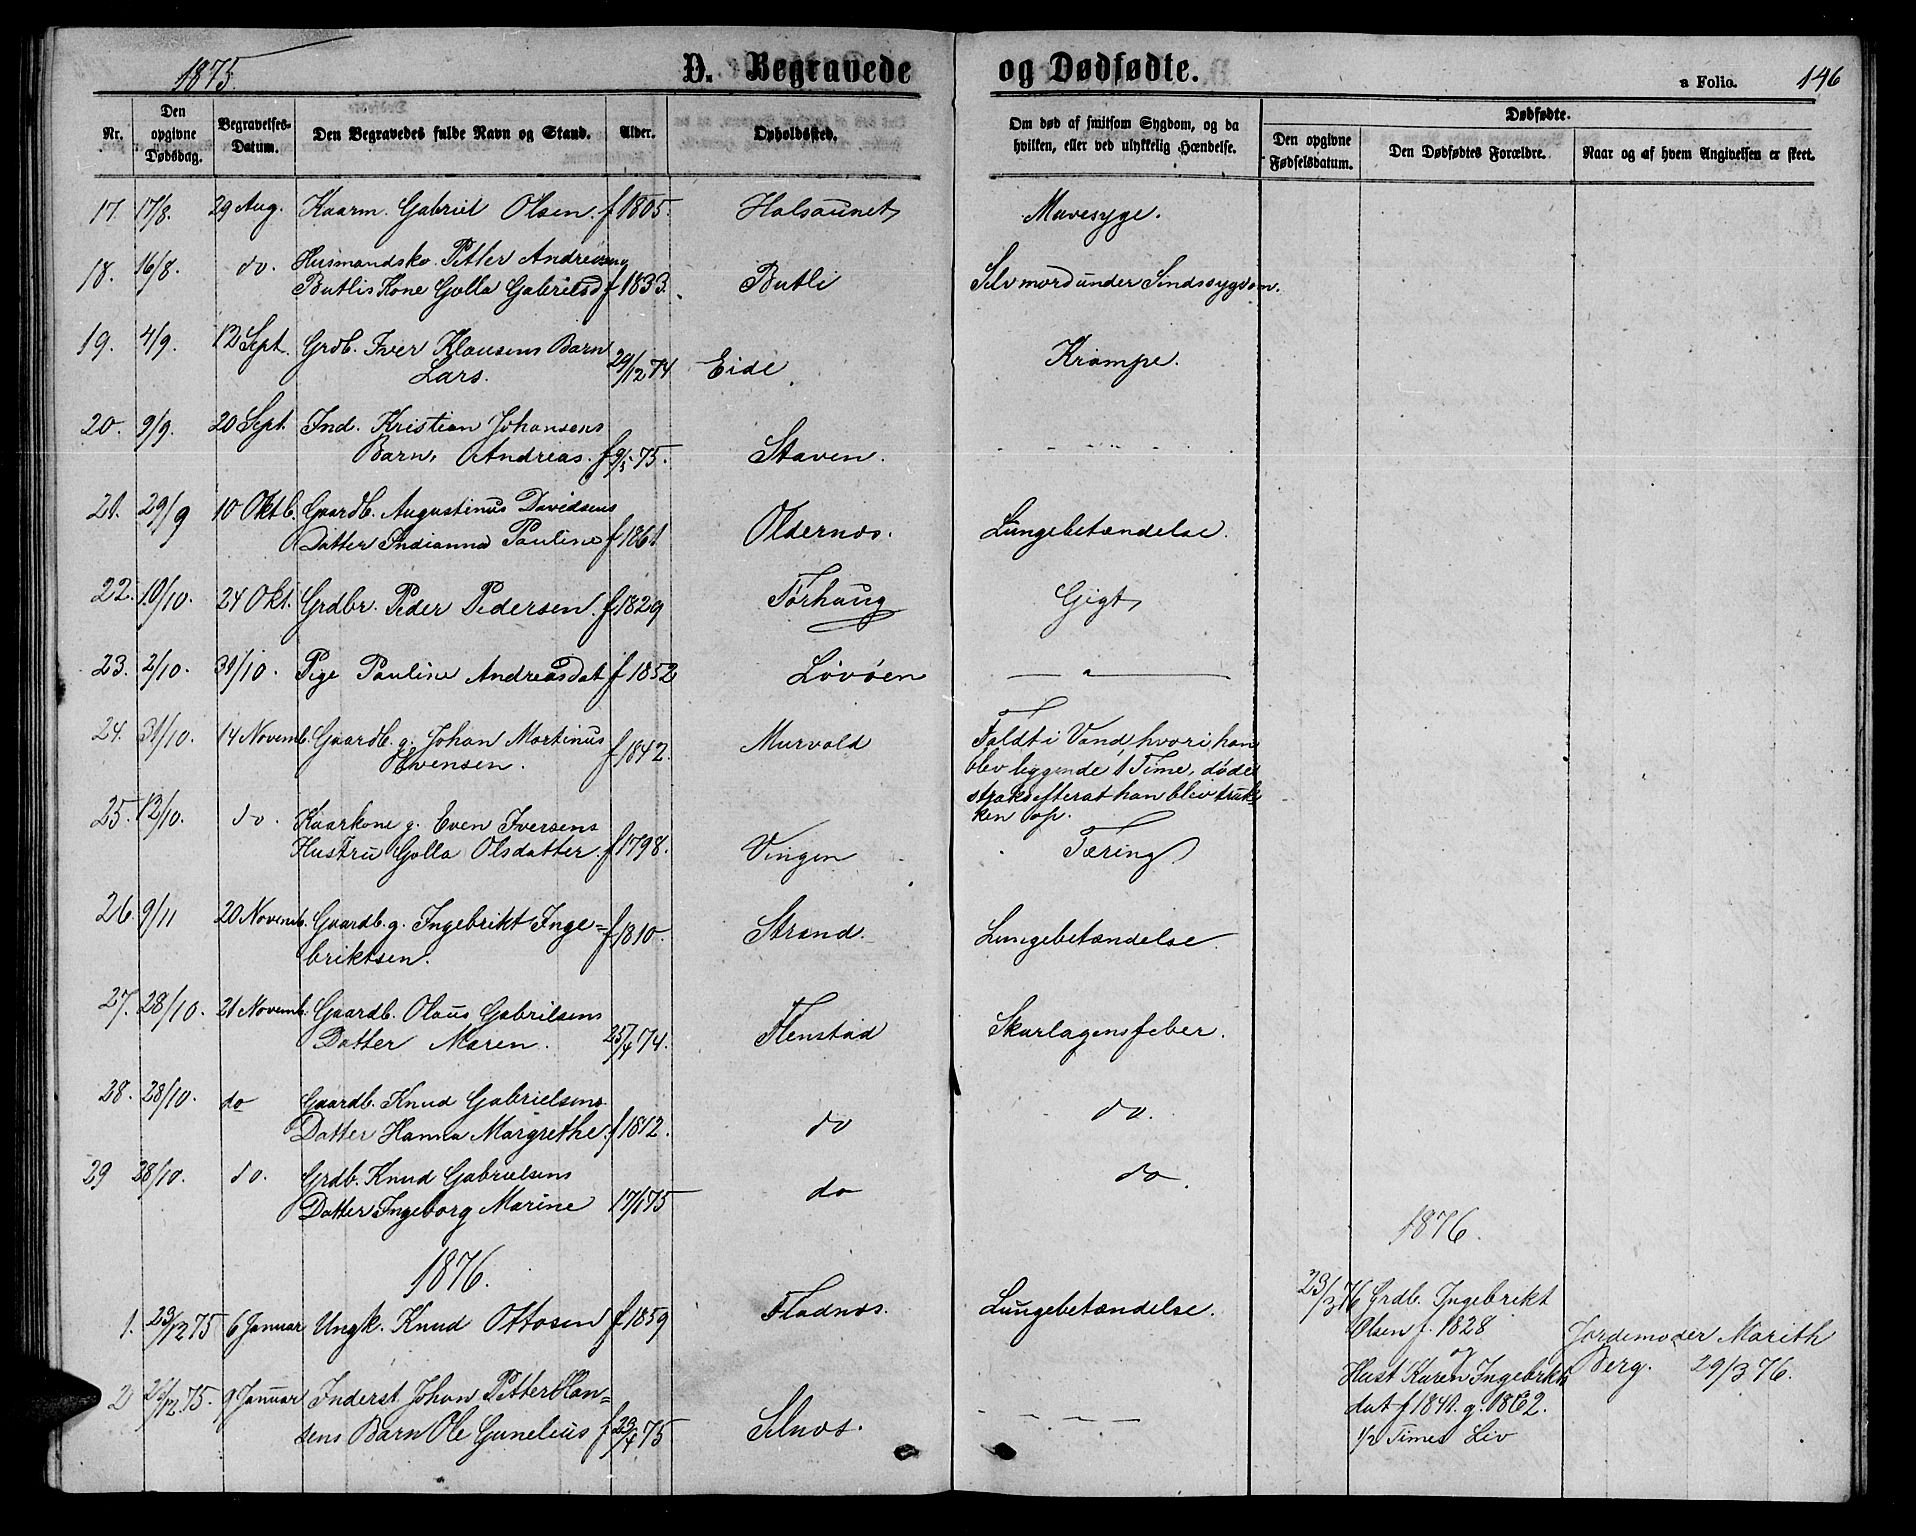 1875.
D. Begravede og Dødfødte.
a Folio. 146
Nr. Den opgivne Dødsdag. Begravelses-Datum. Den Begravedes fulde Navn og Stand. Alder. Opholdssted. Om død af smitsom Sygdom, og da hvilken, eller ved ulykkelig Hændelse. Dødfødte.
Den opgivne Fødselsdatum. Den Dødfødtes Forældre. Naar og af hvem Angivelsen er skeet.
17. 17/8. 29 Aug. Kaarm. Gabriel Olsen. f 1805. Halsaunet Mavesyge.
18. 16/8. do. Husmandsko. Petter Andreas
Butlis Kone Golla Gabrielsd f 1833. Butli Selvmord under Sindssygdom.
19. 4/9. 12 Sept. Grdb. Iver Klausens Barn
Lars. 29/12 74 Eide Krampe.
20. 9/9. 20 Sept. Ind. Kristian Johansens
Barn, Andreas. f 9/5 75. Staven. - - - -
21. 29/9 10 Oktb. Gaardb. Augustinus Davidsens
Datter Indianna Pauline f 1861 Oldernes. Lungebetændelse.
22. 10/10. 24 Okt. Grdbr. Peder Pedersen. f 1829 Forhaug Gigt
23. 2/10. 31/10. Pige Pauline Andreasdat f 1852 Lövöen — " —
24. 31/10. 14 Novemb. Gaardb. g. Johan Martinus
Evensen. f 1842. Murvold Faldt i Vand, hvori han
blev liggende 1 Time, døde
straks efterat han blev truk-
ken op.
25. 12/10. do. Kaarkone g. Even Iversens
Hustru Golla Olsdatter. f 1798. Vingen Tæring
26. 9/11 20 Novemb. Gaardb. g. Ingebrikt Inge=
briktsen. f 1810. Strand. Lungebetændelse.
27. 28/10. 21 Novemb. Gaardb. Olaus Gabrilsens
Datter Maren. 25/4 74. Flenstad Skarlagensfeber.
28. 28/10. do Gaardb. Knud Gabrielsens
Datter Hanna Margrethe. f 1812. do do.
29 28/10. do. Grdb. Knud Gabrielsens
Datter Ingeborg Marine 17/1 75 do do.
1876.
1. 23/12 75 6 Januar Ungk. Knud Ottosen f 1859 Fladnes. Lungebetændelse.
2 9 Januar Inderst. Johan Petter Han=
sens Barn Ole Gunelius f 23/4 75 Selnes. - - - -
1876.
23/3 76 Grdb. Ingebrikt
Olsen f. 1828
og
Hust Karen Ingebrikts
dat f 1841. g. 1862.
1/2 Times Liv
Jordemoder Marith
Berg. 29/3 76.